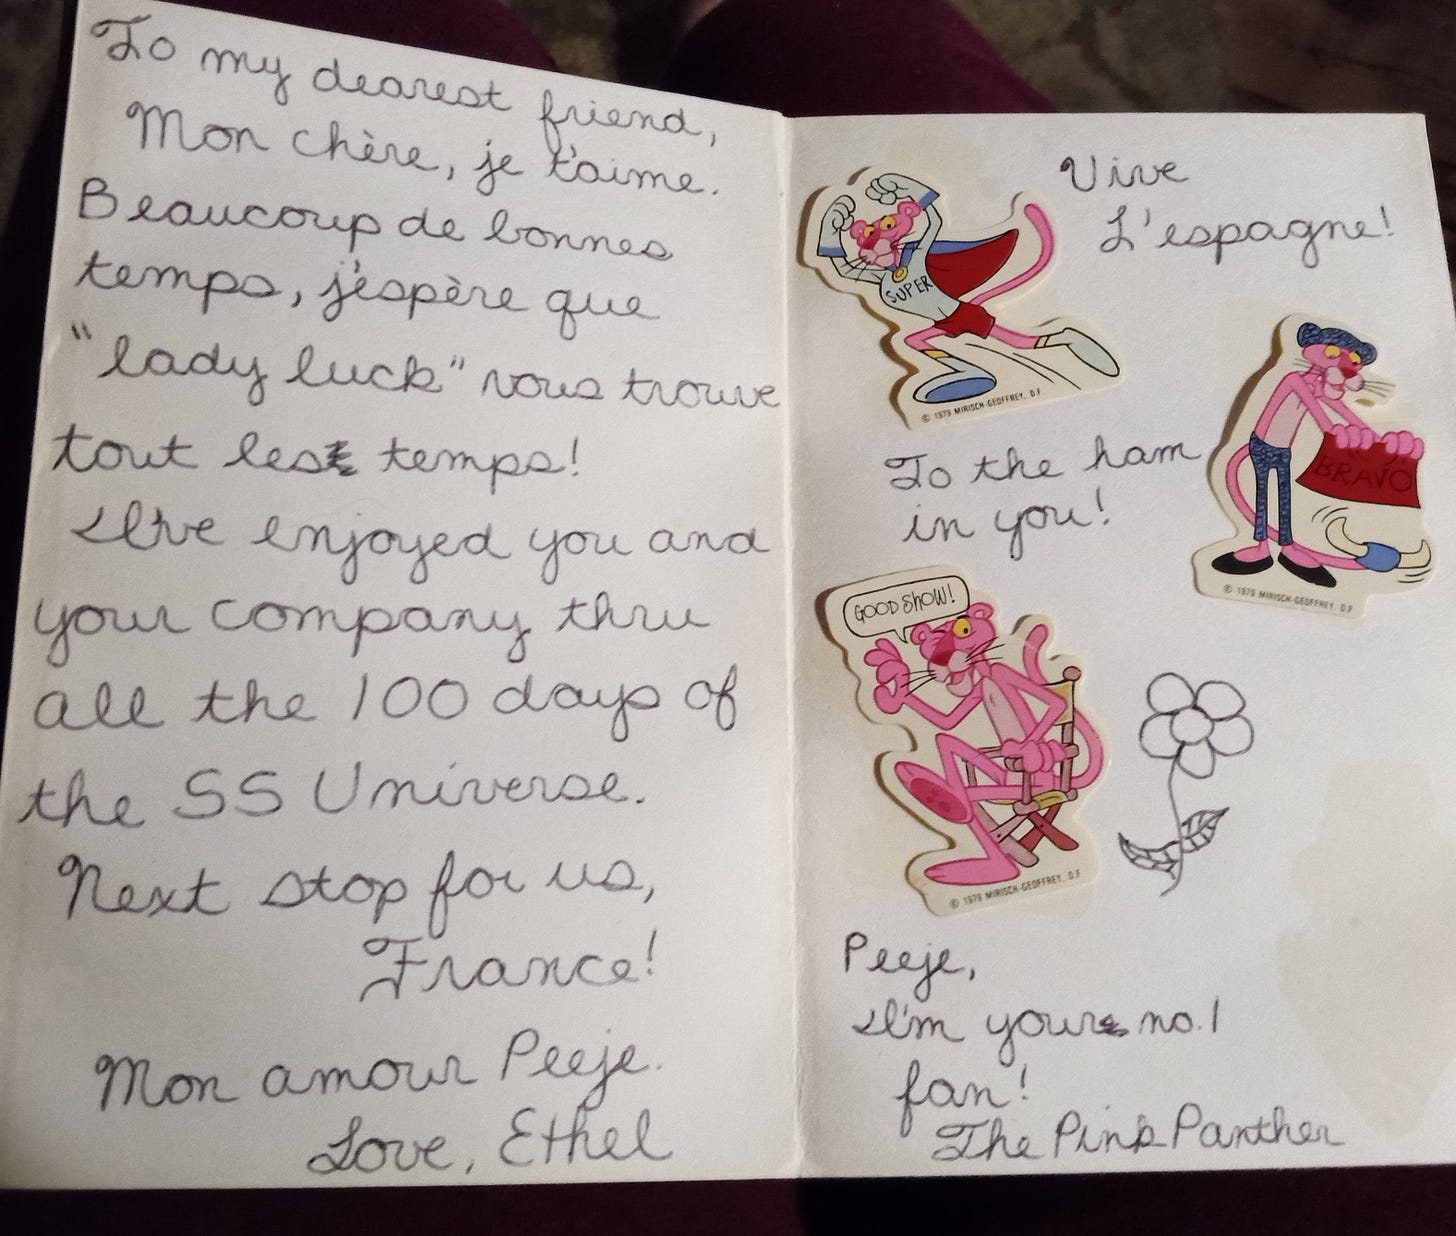 To my dearest friend,
Mon chère, je t'aime.
Beaucoup de bonnes
temps, j'éspère que
"lady luck" vous trouve
tout les temps!
I've enjoyed you and
your company thru
all the 100 days of
the SS Universe.
Next stop for us,
France!
Mon amour Peeje.
Love, Ethel
Vive
L'espagne!
SUPER
© 1979 MIRISCH-GEOFFREY, D.F.
To the ham
in you!
BRAVO
© 1979 MIRISCH-GEOFFREY, D.F
GOOD SHOW!
© 1979 MIRISCH-GEOFFREY, D.F
Peeje,
I'm your no. 1
fan!
The Pink Panther